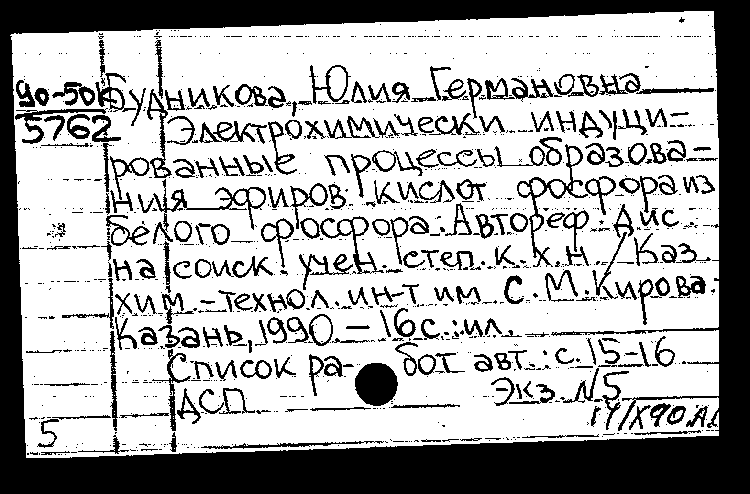 90-50к Будникова, Юлия Германовна
5762 Электрохимически индуци-
рованные процессы образова-
ния эфиров кислот фосфора из
белого фосфора: Автореф. дис.
на соиск. учен. степ. к.х.н. / Каз.
хим.-технол. ин-т им С.М.Кирова.-
Казань, 1990.- 16с.:ил.
Список работ авт.: с.15-16
ДСП Экз. N5
5 17/X90